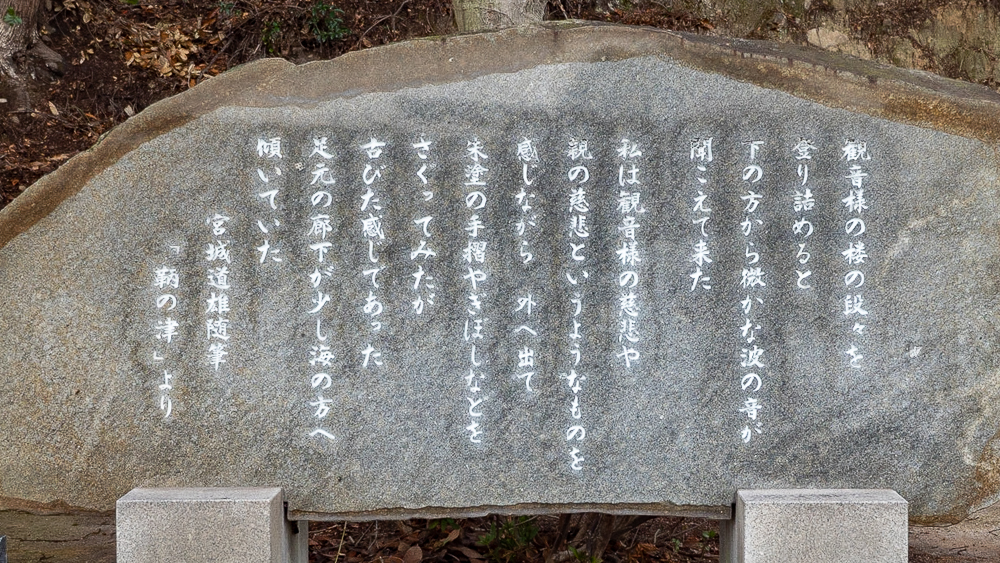 観音様の楼の段々を
登り詰めると
下の方から微かな波の音が
聞こえて来た
私は観音様の慈悲や
親の慈悲というようなものを
感じながら　外へ出て
朱塗の手摺やぎぼしなどを
さぐってみたが
古びた感じであった
足元の廊下が少し海の方へ
傾いていた
宮城道雄随筆
「鞆の津」より